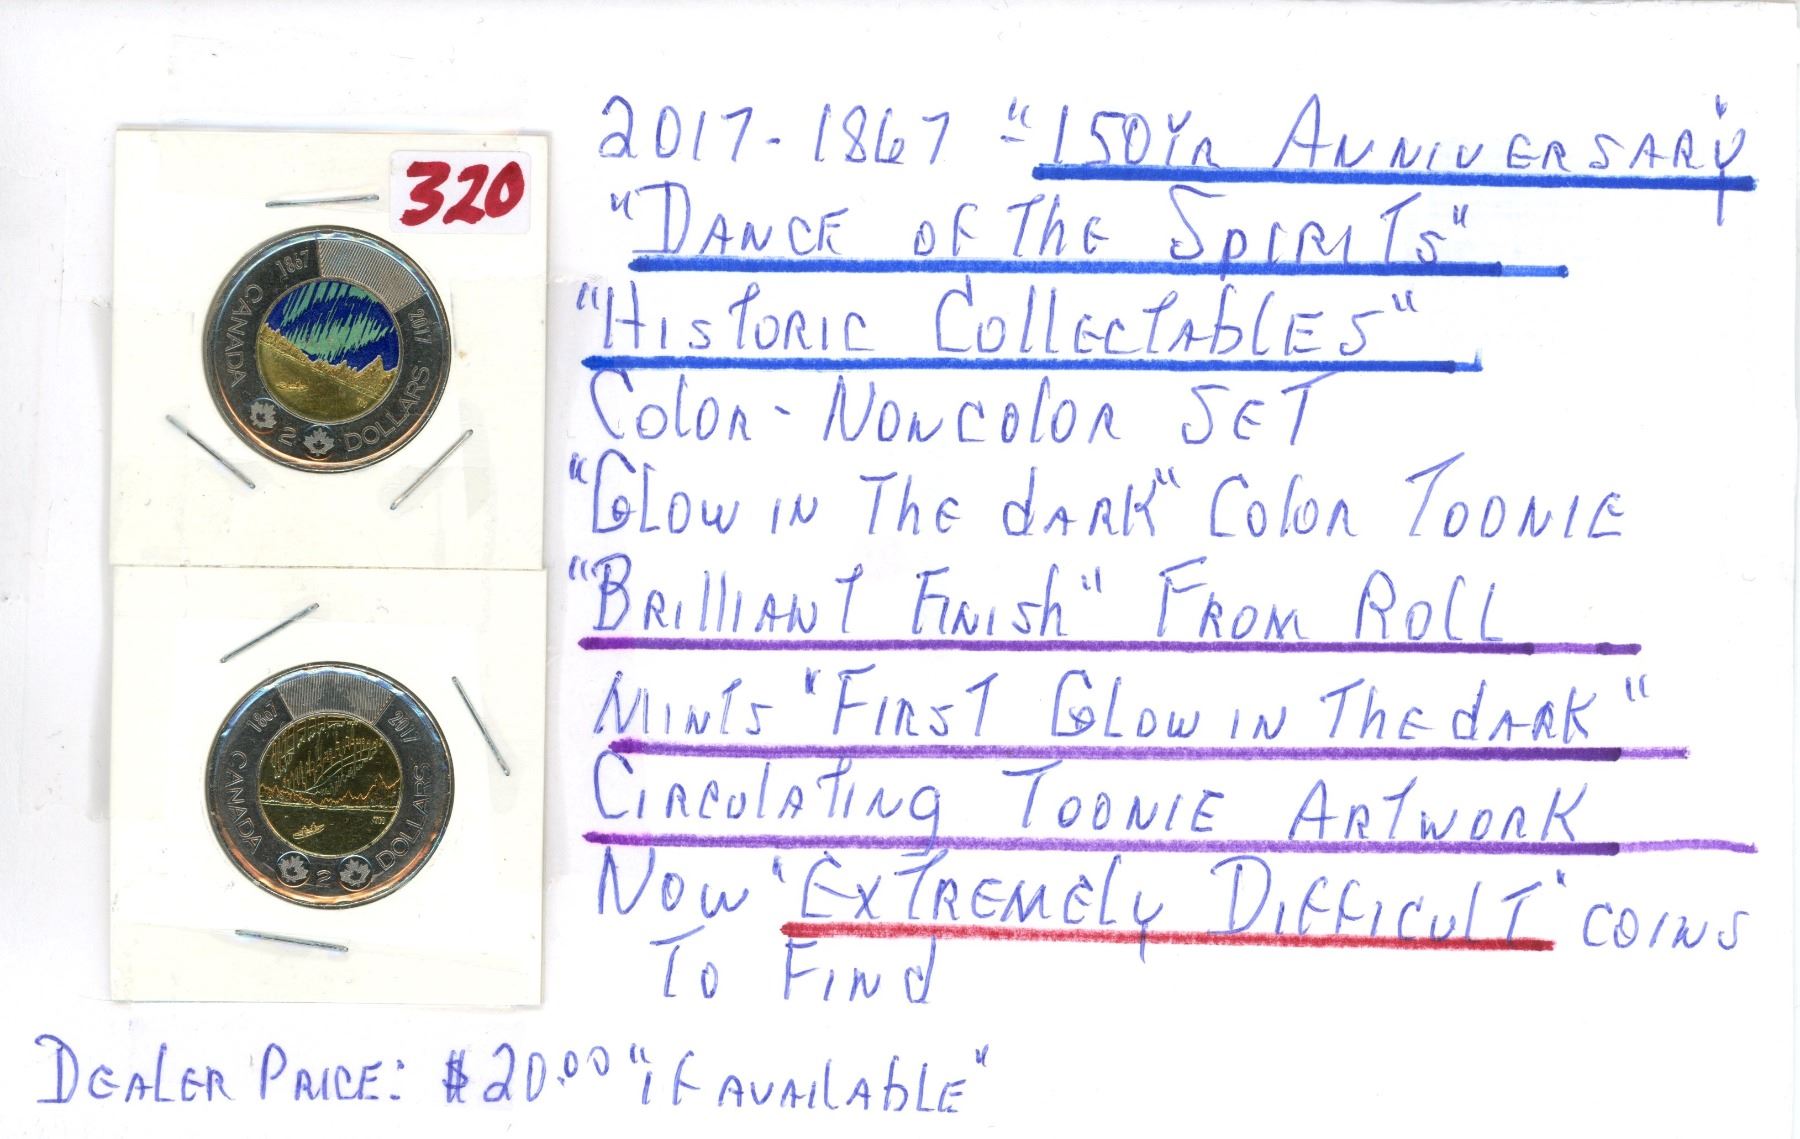 320
1867
2017
CANADA
2 DOLLARS
1867
2017
CANADA
2 DOLLARS
2017-1867 "150Yr Anniversary"
"Dance of The Spirits"
"Historic Collectables"
Color-Noncolor Set
"Glow in The dark" Color Toonie
"Brilliant Finish" From Roll
Mints "First Glow in The dark"
Circulating Toonie Artwork
Now "Extremely Difficult" coins
To Find
Dealer Price: $20.00 "if available"